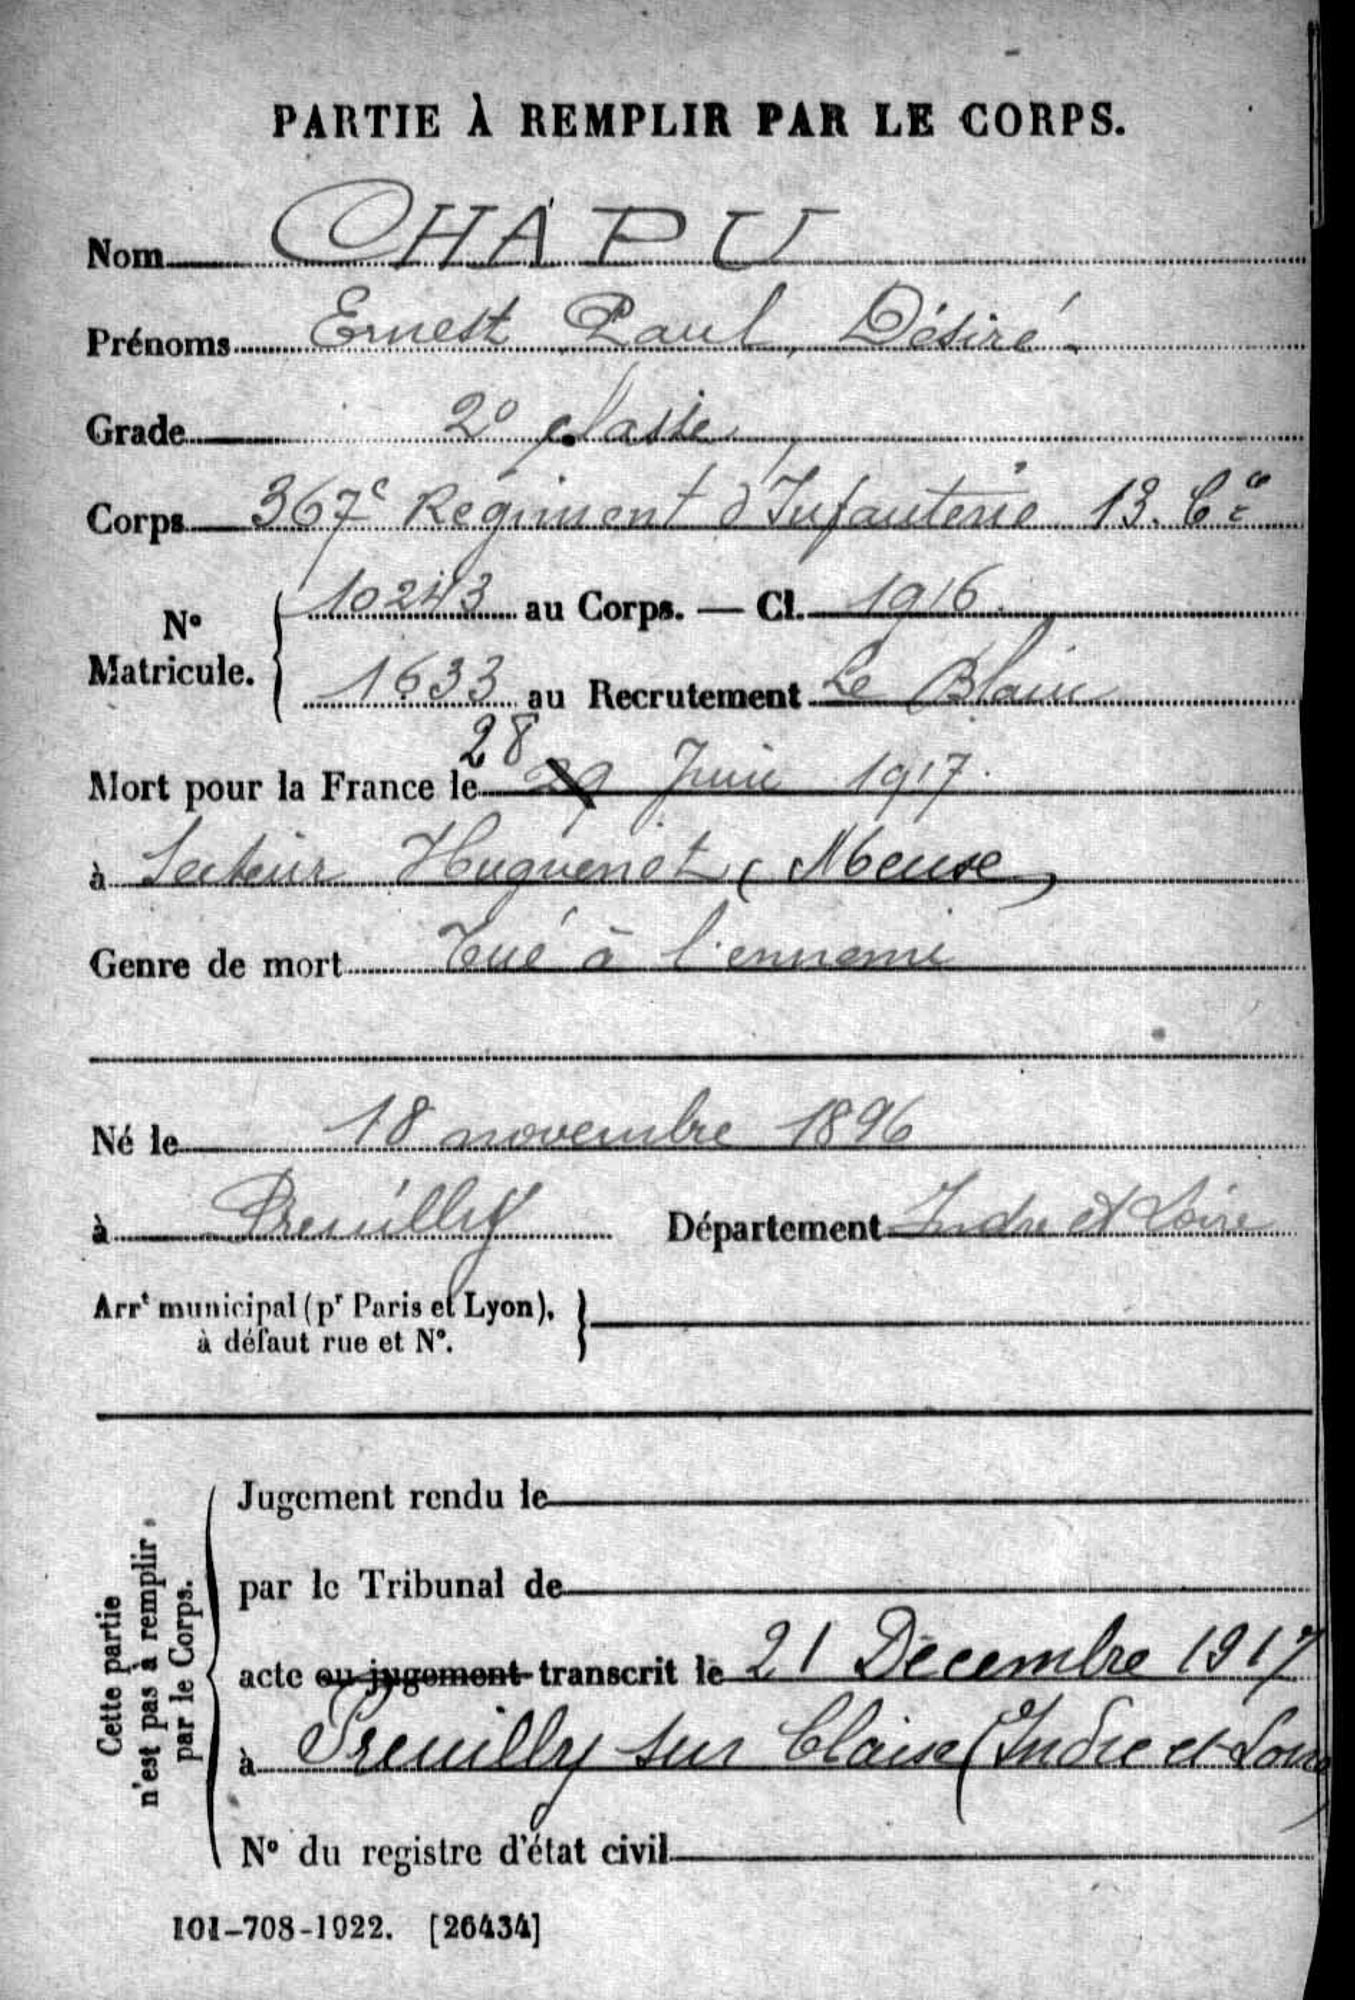 PARTIE À REMPLIR PAR LE CORPS.
Nom CHAPU
Prénoms Ernest, Paul, Désiré
Grade 2e classe
Corps 367e Régiment d'Infanterie 13. Cie
N° Matricule. 10243 au Corps. — Cl. 1916
1633 au Recrutement Le Blanc
28
Mort pour la France le 29 Juin 1917.
à Secteur Huguenot (Meuse)
Genre de mort Tué à l'ennemi
Né le 18 novembre 1896
à Preuilly Département Indre et Loire
Arrt municipal (pr Paris et Lyon),
à défaut rue et N°.
Cette partie
n'est pas à remplir
par le Corps.
Jugement rendu le
par le Tribunal de
acte ou jugement transcrit le 21 Décembre 1917
à Preuilly sur Claise (Indre et Loire)
N° du registre d'état civil
101-708-1922. [26434]